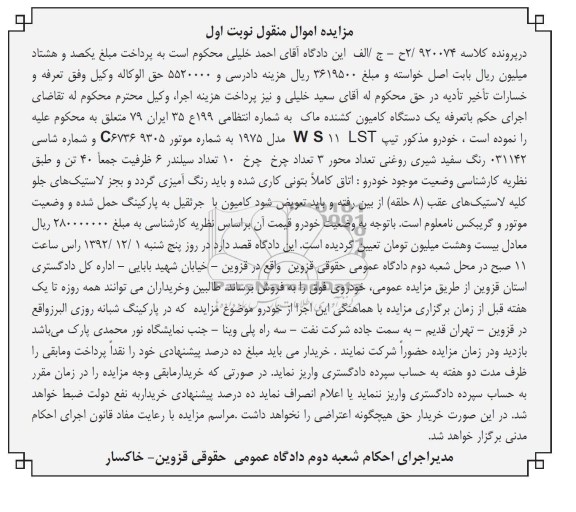 مزایده اموال منقول نوبت اول
درپرونده کلاسه ۹۲۰۰۷۴ /۲ح – ج /الف این دادگاه آقای احمد خلیلی محکوم است به پرداخت مبلغ یکصد و هشتاد
میلیون ریال بابت اصل خواسته و مبلغ ۳۶۱۹۵۰۰ ریال هزینه دادرسی و ۵۵۲۰۰۰۰ حق الوکاله وکیل وفق تعرفه و
خسارات تأخیر تأدیه در حق محکوم له آقای سعید خلیلی و نیز پرداخت هزینه اجرا، وکیل محترم محکوم له تقاضای
اجرای حکم باتعرفه یک دستگاه کامیون کشنده ماک به شماره انتظامی ۱۹۹ع ۳۵ ایران ۷۹ متعلق به محکوم علیه
را نموده است ، خودرو مذکور تیپ W S ۱۱ LST مدل ۱۹۷۵ به شماره موتور C۶۷۳۶ ۹۳۰۵ و شماره شاسی
۰۳۱۱۴۲ رنگ سفید شیری روغنی تعداد محور ۳ تعداد چرخ چرخ ۱۰ تعداد سیلندر ۶ ظرفیت جمعاً ۴۰ تن و طبق
نظریه کارشناسی وضعیت موجود خودرو : اتاق کاملاً بتونی کاری شده و باید رنگ آمیزی گردد و بجز لاستیک‌های جلو
کلیه لاستیک‌های عقب (۸ حلقه) از بین رفته و باید تعویض شود کامیون با جرثقیل به پارکینگ حمل شده و وضعیت
موتور و گریبکس نامعلوم است. باتوجه به وضعیت خودرو قیمت آن براساس نظریه کارشناسی به مبلغ ۲۸۰۰۰۰۰۰۰ ریال
معادل بیست وهشت میلیون تومان تعیین گردیده است. این دادگاه قصد دارد در روز پنج شنبه ۱ /۱۲ /۱۳۹۲ راس ساعت
۱۱ صبح در محل شعبه دوم دادگاه عمومی حقوقی قزوین واقع در قزوین – خیابان شهید بابایی – اداره کل دادگستری
استان قزوین از طریق مزایده عمومی، خودروی فوق را به فروش برساند. طالبین وخریداران می توانند همه روزه تا یک
هفته قبل از زمان برگزاری مزایده با هماهنگی این اجرا از خودرو موضوع مزایده که در پارکینگ شبانه روزی البرزواقع
در قزوین – تهران قدیم – به سمت جاده شرکت نفت – سه راه پلی وینا – جنب نمایشگاه نور محمدی پارک می‌باشد
بازدید ودر زمان مزایده حضوراً شرکت نمایند . خریدار می باید مبلغ ده درصد پیشنهادی خود را نقداً پرداخت ومابقی را
ظرف مدت دو هفته به حساب سپرده دادگستری واریز نماید. در صورتی که خریدارمابقی وجه مزایده را در زمان مقرر
به حساب سپرده دادگستری واریز ننماید یا اعلام انصراف نماید ده درصد پیشنهادی خریداربه نفع دولت ضبط خواهد
شد. در این صورت خریدار حق هیچگونه اعتراضی را نخواهد داشت .مراسم مزایده با رعایت مفاد قانون اجرای احکام
مدنی برگزار خواهد شد.
مدیراجرای احکام شعبه دوم دادگاه عمومی حقوقی قزوین– خاکسار